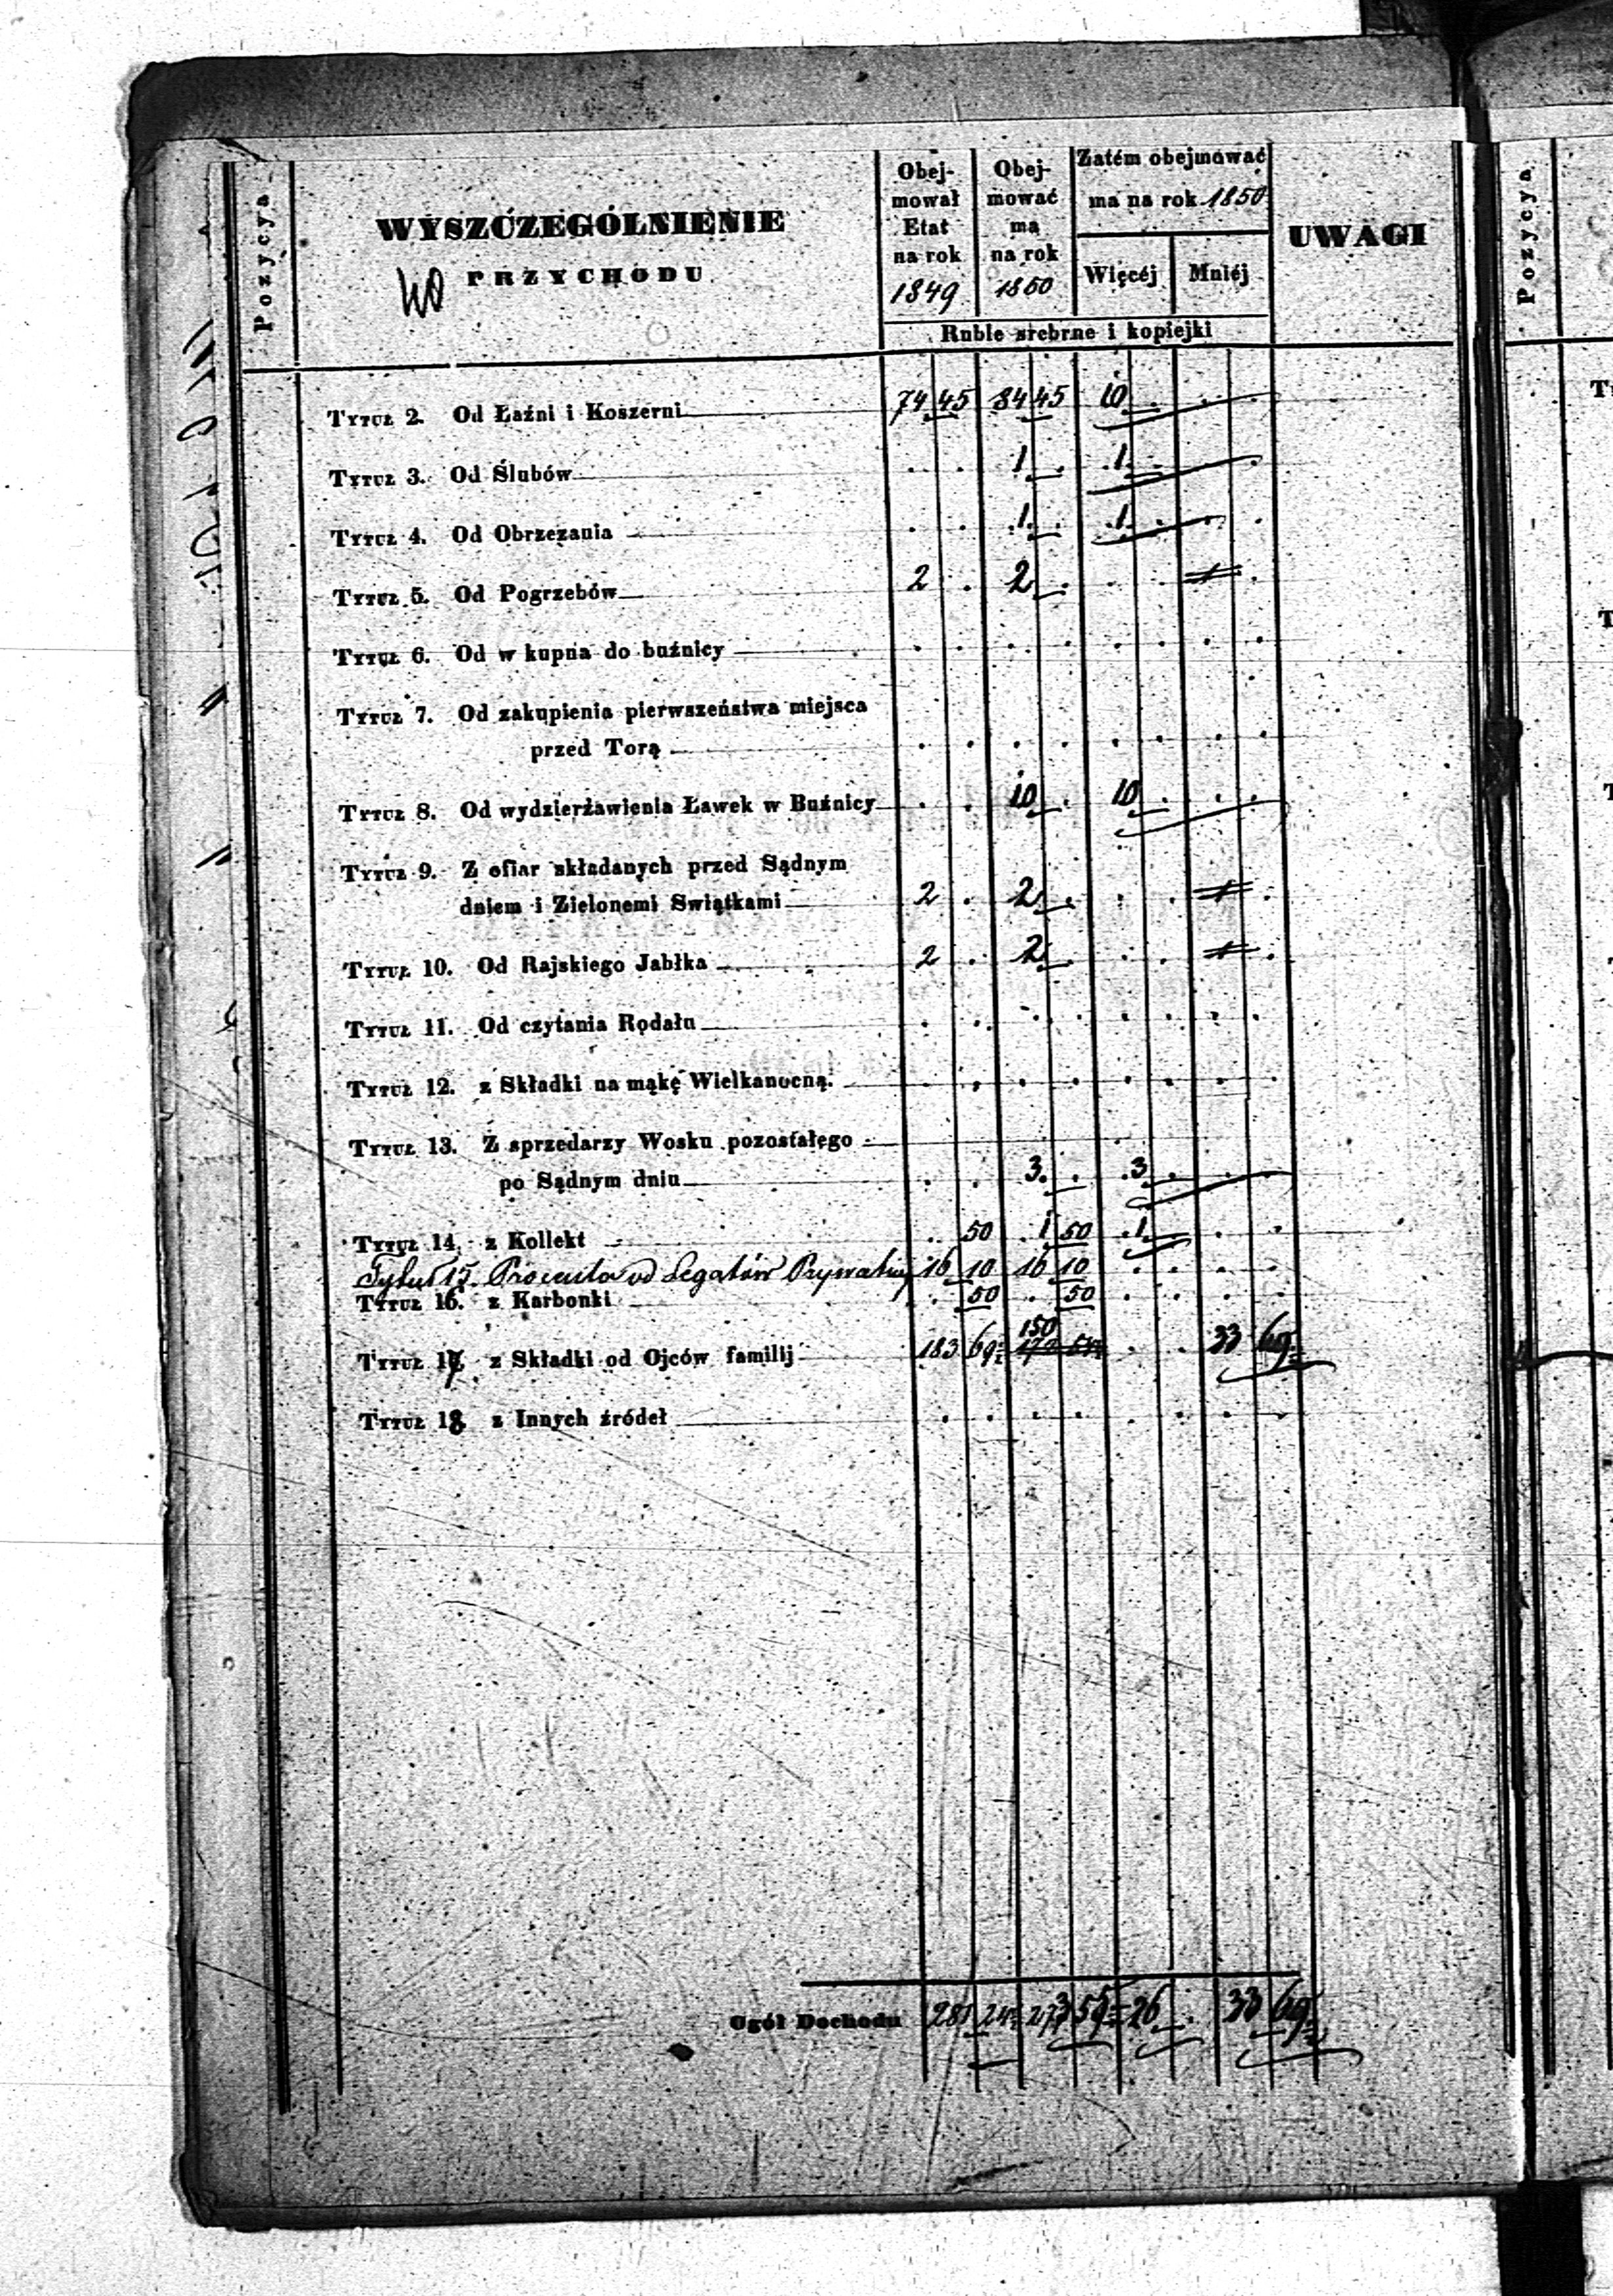 Pozycya
WYSZCZEGÓLNIENIE
PRZYCHODU
Obej-
mował
Etat
na rok
1849
Obej-
mować
ma
na rok
1850
Zatém obejmować
ma na rok 1850
Więcéj
Mniéj
UWAGI
Ruble srebrne i kopiejki
Tytuł 2. Od Łaźni i Koszerni 74 45 84 45 10
Tytuł 3. Od Ślubów 1 1
Tytuł 4. Od Obrzezania 1 1
Tytuł 5. Od Pogrzebów 2 2
Tytuł 6. Od w kupna do buźnicy
Tytuł 7. Od zakupienia pierwszeństwa miejsca
przed Torą
Tytuł 8. Od wydzierżawienia Ławek w Buźnicy 10 10
Tytuł 9. Z ofiar składanych przed Sądnym
dniem i Zielonemi Swiątkami 2 2
Tytuł 10. Od Rajskiego Jabłka 2 2
Tytuł 11. Od czytania Rodału
Tytuł 12. z Składki na mąkę Wielkanocną.
Tytuł 13. Z sprzedarzy Wosku pozostałego
po Sądnym dniu 3 3
Tytuł 14. z Kollekt 50 1 50 1
Tytuł 15. Procenta od Legatów Prywatny 16 10 16 10
Tytuł 16. z Karbonki 50 50
Tytuł 17. z Składki od Ojców familij 183 69 150 33 69
Tytuł 18. z Innych źródeł
Ogół Dochodu 281 24 273 55 26 33 69
Pozycya